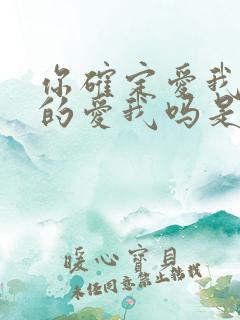 你确定爱我
的爱我吗是
暖心宝贝
未经同意禁止转载